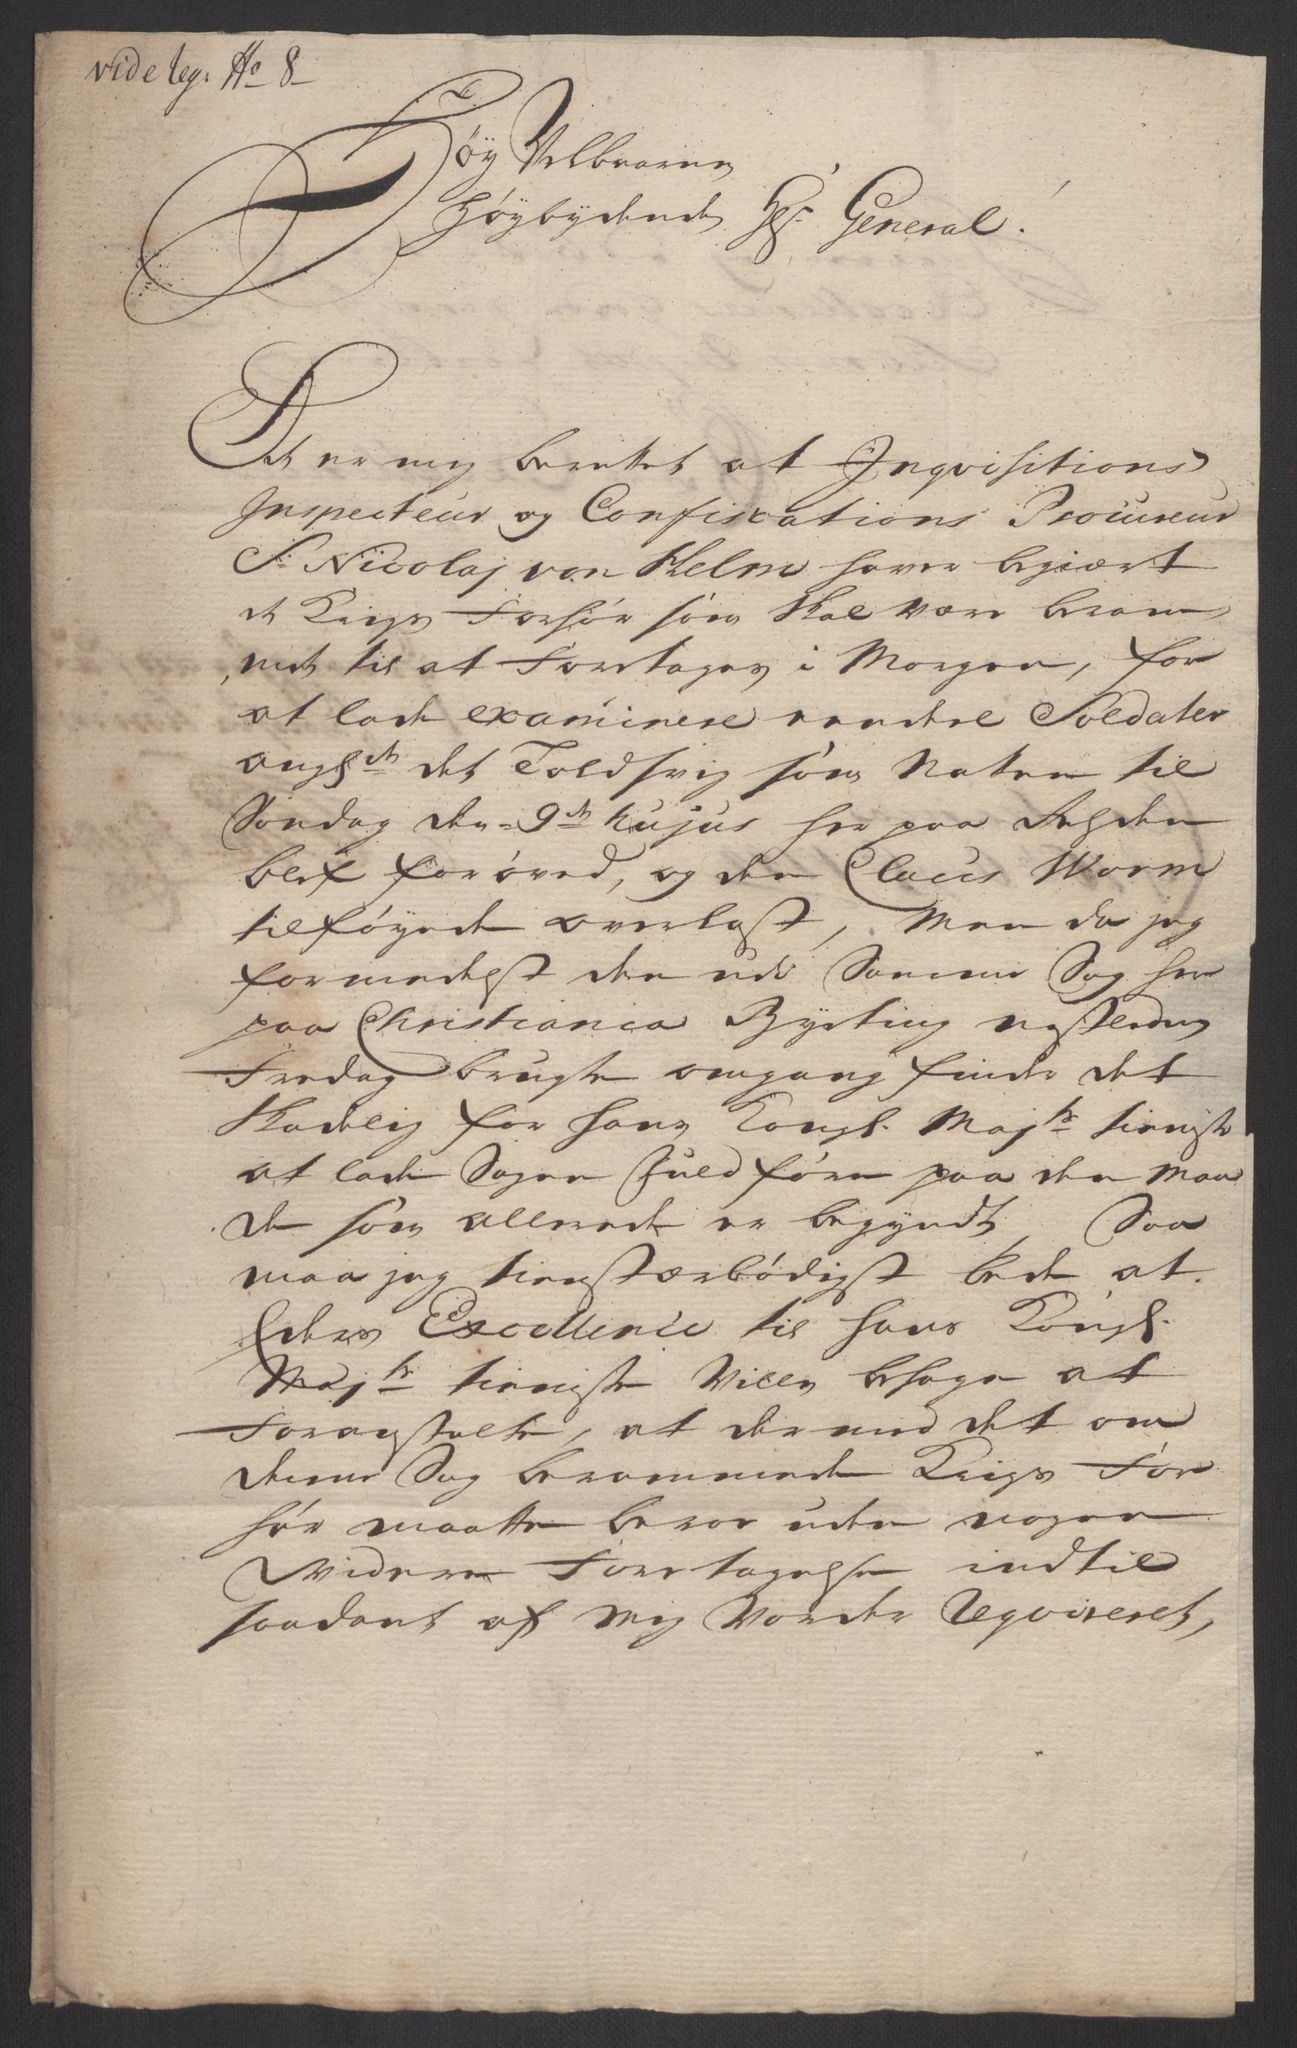 vide leg: No 8
Høy Velbaarne
Høybydende Hr: General!
Det er mig berettet at Inqvisitions
Inspecteur og Confiscations Procureur
Sr Nicolaj von Helm haver begiært
et Krigs Forhør som skal være beram„
„met til at Foretages i Morgen, for
at lade examinere eendeel Soldater
anglde det Toldsvig som Naten til
Søndag den 9de hujus her paa
blef forøved, og den Claus Worm
tilføyede overlast, Men da jeg
formedelst den udi Samme Sag her
paa Christiania Byeting nestleden
Fredag brugte omgang finder det
skadelig for Hans Kongl. Majts tieniste
at lade Sagen Fuldføre paa den Maa
de som allerede er begyndt, Saa
maa jeg tienstærbødigst bede at
Eders Excellence til Hans Kongl.
Majts tieniste Ville behage at
Foranstalte, at dermed det om
denne Sag berammede Krigs For
hør maatte beroe uden nogen
Widere Foretagelse indtil
saadant af Mig Vorder Reqvireret,